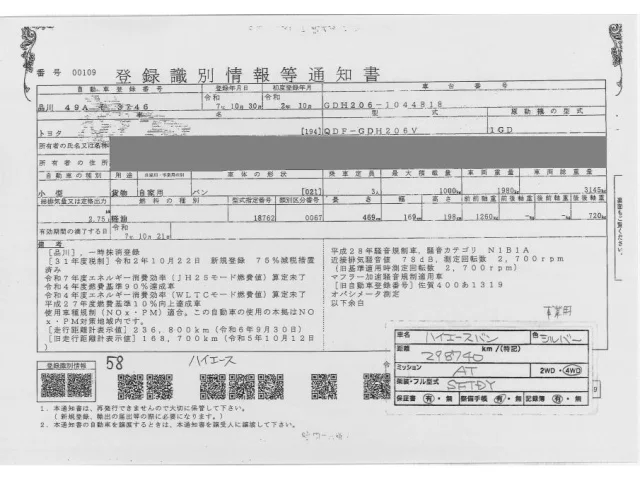 番号 00109 登録識別情報等通知書
自動車登録番号 登録年月日 初度登録年月 車台番号
品川 49A 令和 7年 10月 30日 令和 2年 10月 GDH206-1044818
車名 型式 原動機の型式
トヨタ [194] QDF-GDH206V 1GD
所有者の氏名又は名称
所有者の住所
自動車の種別 用途 自家用・事業用の別 車体の形状 乗車定員 最大積載量 車両重量 車両総重量
小型 貨物 自家用 バン [021] 3人 1000kg 1980kg 3145kg
総排気量又は定格出力 燃料の種類 型式指定番号 類別区分番号 長さ 幅 高さ 前前軸重 前後軸重 後前軸重 後後軸重
2.75 軽油 18762 0067 469cm 169cm 198cm 1260kg -kg -kg 720kg
有効期間の満了する日 令和 7年 10月 21日
備考
[品川], 一時抹消登録
[31年度税制] 令和2年10月22日 新規登録 75%減税措置済み
令和7年度エネルギー消費効率(JH25モード燃費値)算定未了
令和4年度燃費基準90%達成車
令和4年度エネルギー消費効率(WLTCモード燃費値)算定未了
平成27年度燃費基準10%向上達成車
使用車種規制(NOx・PM)適合。この自動車の使用の本拠はNOx・PM対策地域内です。
[走行距離計表示値] 236,800km (令和6年9月30日)
[旧走行距離計表示値] 168,700km (令和5年10月12日)
平成28年騒音規制車, 騒音カテゴリ N1B1A
近接排気騒音値 78dB, 測定回転数 2,700rpm
(旧基準適用時測定回転数 2,700rpm)
マフラー加速騒音規制適用車
[旧自動車登録番号] 佐賀400あ1319
オパシメータ測定
以下余白
事業用
裏面もご覧ください。
登録識別情報 58 ハイエース
車名 ハイエースバン 色 シルバー
距離 298740 km /(特記)
ミッション AT 2WD・4WD
架装・フル型式
保証書 有・無 整備手帳 有・無 記録簿 有・無
1. 本通知書は、再発行できませんので大切に保管して下さい。
(新規登録、輸出の届出等の際に必要になります。)
2. 本通知書の自動車を譲渡するときは、本通知書を譲受人に譲渡して下さい。